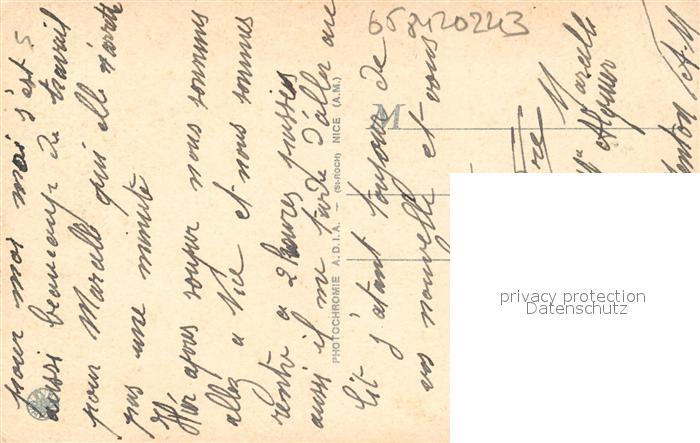 pour moi moi s'est
aussi beaucoup de travail
pour Marcelle qui elle n'arrete
pas une minute
Hier apres souper nous sommes
allez a Nice et nous sommes
rentre a 2 heures passies
aussi il me tarde d'aller au
lit j'atant toujour de
vos nouvelle et vous
PHOTOCHROMIE A.D.I.A. – (St-ROCH) NICE (A.M.)
M
Marcelle
658420243
privacy protection
Datenschutz